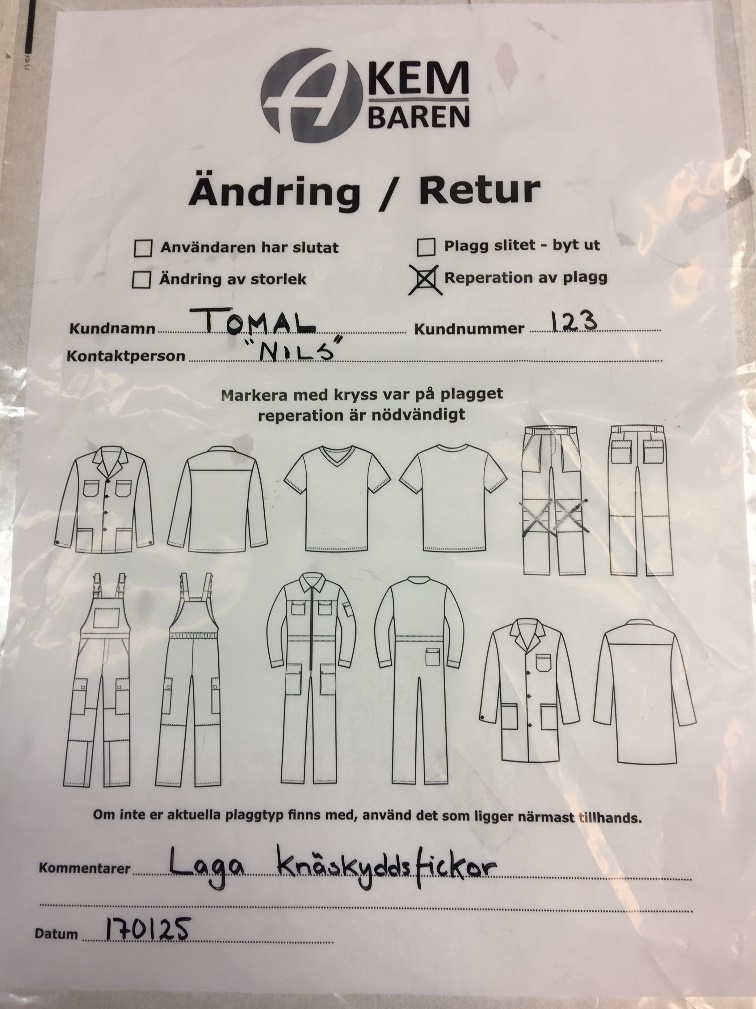 A KEM
BAREN
Ändring / Retur
Användaren har slutat
Plagg slitet - byt ut
Ändring av storlek
Reperation av plagg
Kundnamn TOMAL Kundnummer 123
Kontaktperson "NILS"
Markera med kryss var på plagget
reperation är nödvändigt
Om inte er aktuella plaggtyp finns med, använd det som ligger närmast tillhands.
Kommentarer Laga knäskyddsfickor
Datum 170125